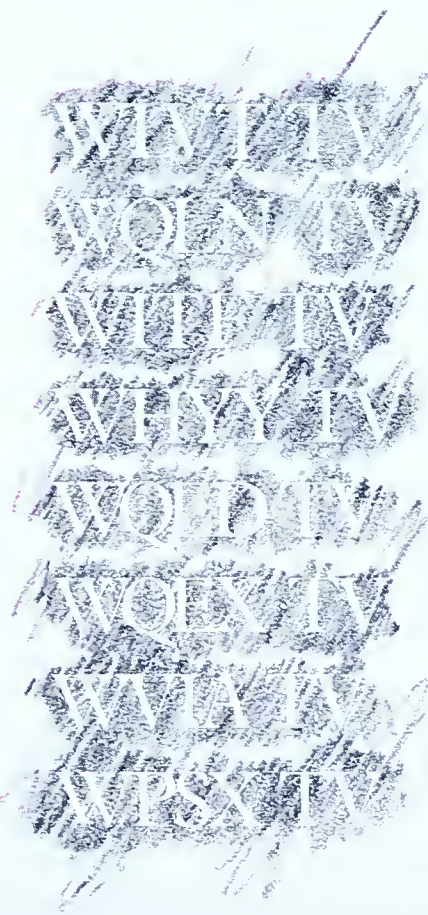 WIVL IV
WQLN IV
WITF IV
WHYY IV
WQED IV
WQEX IV
WVIA IV
WPSX TV